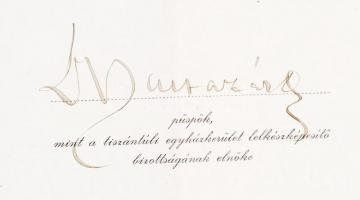 Dr Baltazár
püspök,
mint a tiszántúli egyházkerület lelkészképesítő
bizottságának elnöke